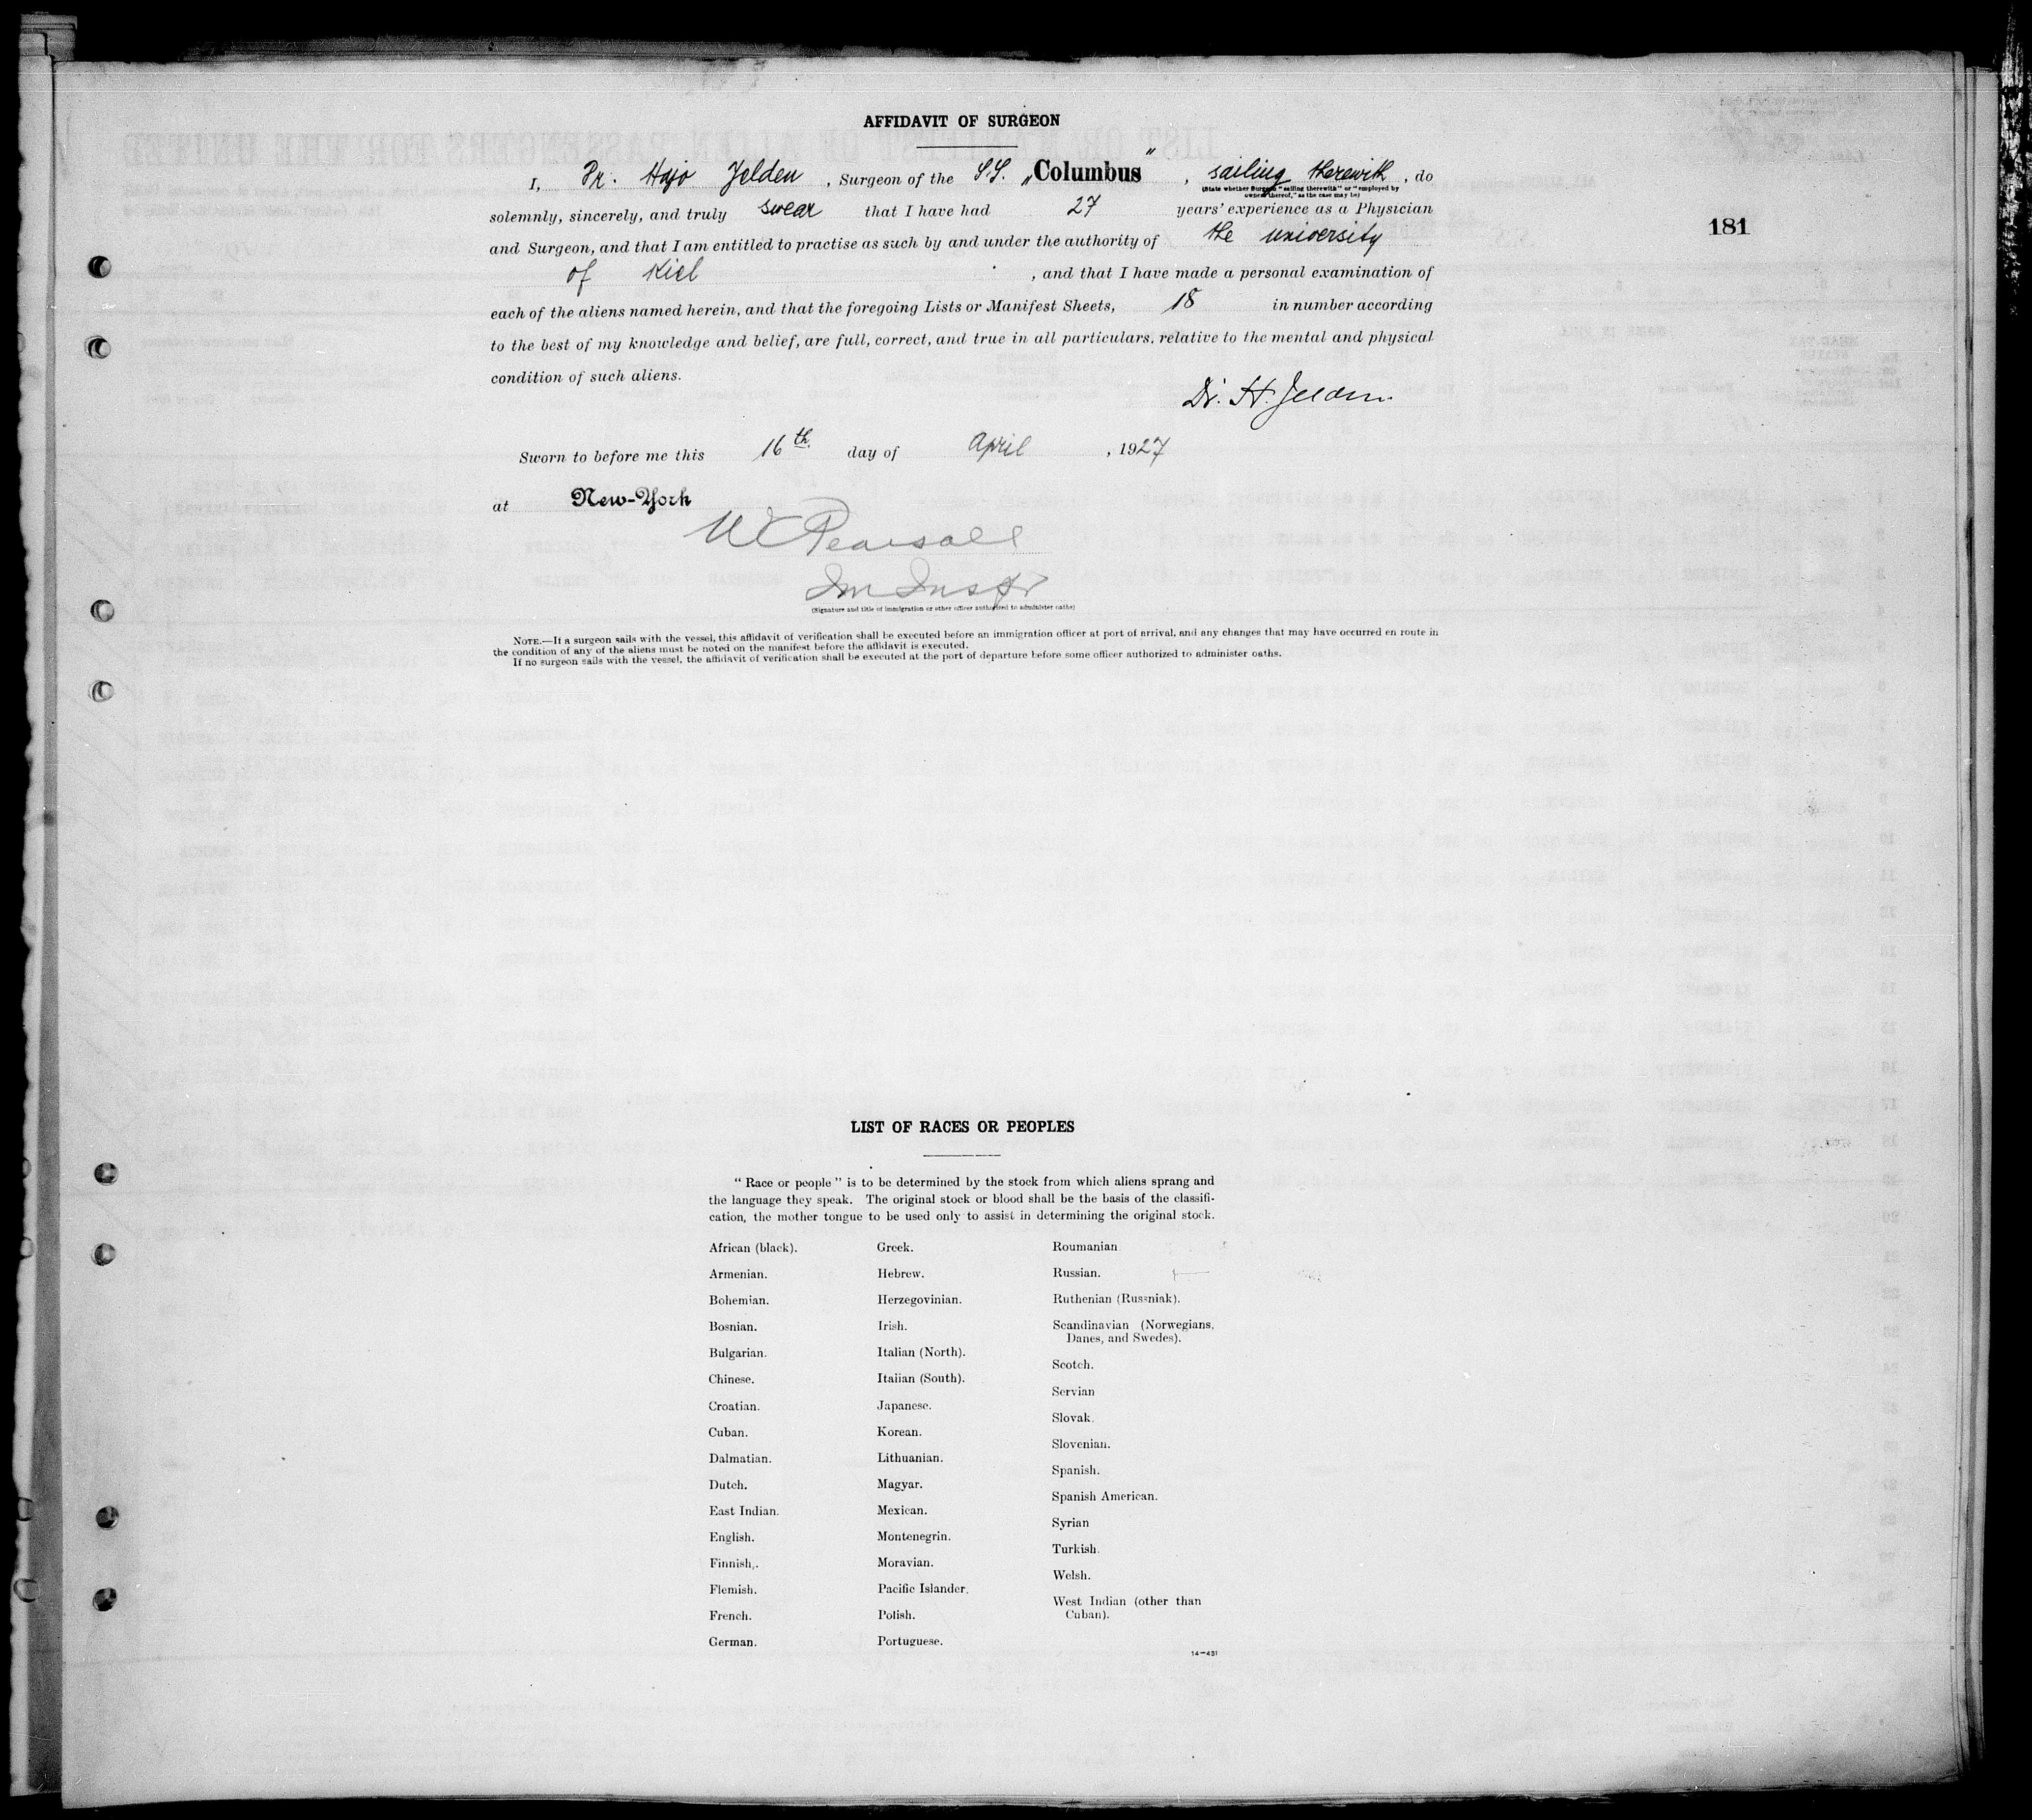 AFFIDAVIT OF SURGEON
I, Dr. Hajo Jelden, Surgeon of the S.S. „Columbus", sailing therewith, do
(State whether Surgeon "sailing therewith" or "employed by
owners thereof," as the case may be)
solemnly, sincerely, and truly swear that I have had 27 years' experience as a Physician
181
and Surgeon, and that I am entitled to practise as such by and under the authority of the university
of Kiel, and that I have made a personal examination of
each of the aliens named herein, and that the foregoing Lists or Manifest Sheets, 18 in number according
to the best of my knowledge and belief, are full, correct, and true in all particulars, relative to the mental and physical
condition of such aliens.
Dr. H. Jelden.
Sworn to before me this 16th day of April, 1927
at New-York
W C Pearsall
Im Inspr
(Signature and title of immigration or other officer authorized to administer oaths)
NOTE.—If a surgeon sails with the vessel, this affidavit of verification shall be executed before an immigration officer at port of arrival, and any changes that may have occurred en route in
the condition of any of the aliens must be noted on the manifest before the affidavit is executed.
If no surgeon sails with the vessel, the affidavit of verification shall be executed at the port of departure before some officer authorized to administer oaths.
LIST OF RACES OR PEOPLES
"Race or people" is to be determined by the stock from which aliens sprang and
the language they speak. The original stock or blood shall be the basis of the classifi-
cation, the mother tongue to be used only to assist in determining the original stock.
African (black).
Armenian.
Bohemian.
Bosnian.
Bulgarian.
Chinese.
Croatian.
Cuban.
Dalmatian.
Dutch.
East Indian.
English.
Finnish.
Flemish.
French.
German.
Greek.
Hebrew.
Herzegovinian.
Irish.
Italian (North).
Italian (South).
Japanese.
Korean.
Lithuanian.
Magyar.
Mexican.
Montenegrin.
Moravian.
Pacific Islander.
Polish.
Portuguese.
Roumanian
Russian.
Ruthenian (Russniak).
Scandinavian (Norwegians,
Danes, and Swedes).
Scotch.
Servian
Slovak.
Slovenian.
Spanish.
Spanish American.
Syrian
Turkish.
Welsh.
West Indian (other than
Cuban).
14—431